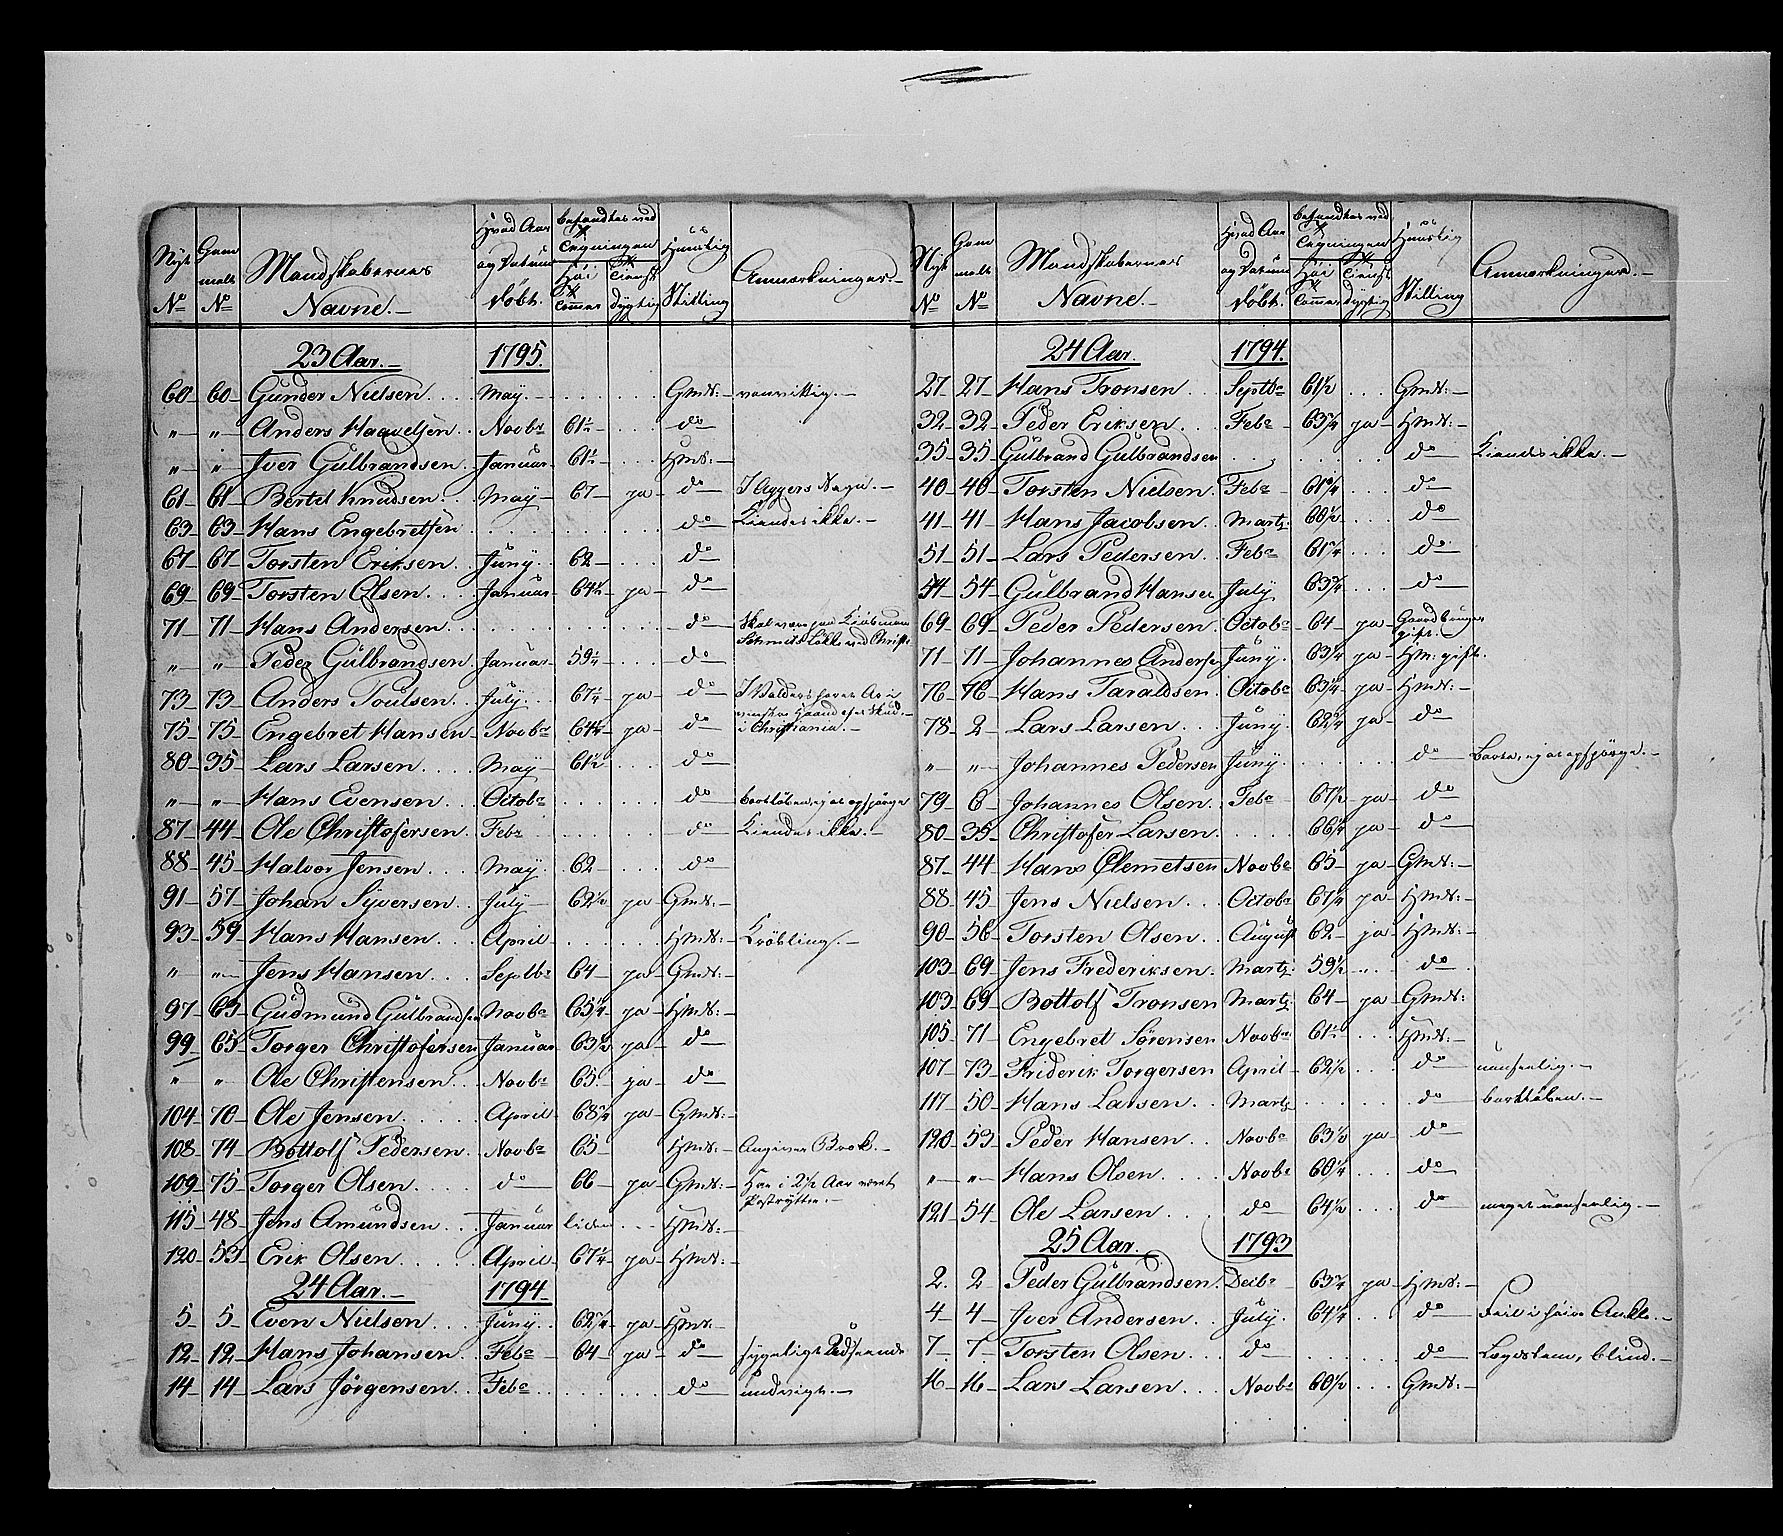 Nyt No | Gam melt No | Mandskabernes Navne. | Hvad Aar og Datum født. | befandtes ved Sessionen: Høi Tommer | Tienst dygtig | Huuslig Stilling | Anmærkninger.
23 Aar. | 1795.
60 | 60 | Gunder Nielsen | May | | | Gmd: | vanvittig.
" | " | Anders Haavelsen | Novbr | 61½ | | do
" | " | Iver Gulbrandsen | Januar | 61½ | | Hmd:
61 | 61 | Bertel Knudsen | May | 67 | ja | do | I Aggers Sogn.
63 | 63 | Hans Engebretsen | | | | do | Kiendes ikke.
67 | 67 | Torsten Eriksen | Juny | 62 | | do
69 | 69 | Torsten Olsen | Januar | 64½ | ja | do
71 | 71 | Hans Andersen | | | | do | Skal være paa Kiøbmand Schmidts Løkke ved Christi
" | " | Peder Gulbrandsen | Januar | 59½ | | do
73 | 73 | Anders Poulsen | July | 67½ | ja | do | I Valders
75 | 75 | Engebret Hansen | Novbr | 64¼ | ja | do | venstre Haand efter Skud. i Christiania.
80 | 35 | Lars Larsen | May | 61½ | | do
" | " | Hans Evensen | Octobr | | | do | bortløben, ej at opspørge
87 | 44 | Ole Christofersen | Febr | | | do | Kiendes ikke.
88 | 45 | Halvor Jensen | May | 62 | | do
91 | 57 | Johan Syversen | July | 62½ | ja | Gmd:
93 | 59 | Hans Hansen | April | | | Hmd: | Krøbling.
" | " | Jens Hansen | Septbr | 64 | ja | Gmd:
97 | 63 | Gudmund Gulbrandsen | Novbr | 65¼ | ja | Hmd:
99 | 65 | Torger Christofersen | Januar | 63½ | ja | do
" | " | Ole Christensen | Novbr | 65 | ja | do
104 | 70 | Ole Jensen | April | 68¼ | ja | Gmd:
108 | 74 | Bottolf Pedersen | Novbr | 65 | | Hmd: | Angiver Brok.
109 | 75 | Torger Olsen | do | 66 | ja | Gmd: | Har i 2½ Aar været Postrytter.
115 | 48 | Jens Amundsen | Januar | liden | | Hmd:
120 | 53 | Erik Olsen | April | 67¼ | ja | Hmd:
24 Aar. | 1794
5 | 5 | Even Nielsen | Juny | 62¾ | ja | Hmd.
12 | 12 | Hans Johansen | Febr | 64 | ja | do | sygeligt Udseende
14 | 14 | Lars Jørgensen | Febr | | | do | undvigt.
Nyt No | Gam melt No | Mandskabernes Navne. | Hvad Aar og Datum født. | befandtes ved Sessionen: Høi Tommer | Tienst dygtig | Huuslig Stilling | Anmærkninger.
24 Aar. | 1794.
27 | 27 | Hans Tronsen | Septbr | 61½ | | Gmd:
32 | 32 | Peder Eriksen | Febr | 63¼ | ja | Hmd:
35 | 35 | Gulbrand Gulbrandsen | | | | do | Kiendes ikke.
40 | 40 | Torsten Nielsen | Febr | 61¾ | | do
41 | 41 | Hans Jacobsen | Marts | 60½ | | do
51 | 51 | Lars Pedersen | Febr | 61¾ | | do
54 | 54 | Gulbrand Hansen | July | 63¾ | | do
69 | 69 | Peder Pedersen | Octobr | 64 | ja | Gaardbruger gift.
71 | 71 | Johannes Andersen | Juny | 63¼ | ja | Hm: gift.
76 | 76 | Hans Taraldsen | Octobr | 63¼ | ja | Hmd:
78 | 2 | Lars Larsen | Juny | 62¾ | ja | do
" | " | Johannes Pedersen | Juny | | | do | Borte, ej at opspørge.
79 | 6 | Johannes Olsen | Febr | 67½ | ja | do
80 | 35 | Christofer Larsen | | 66¼ | ja | do
87 | 44 | Hans Clemetsen | Novbr | 65 | ja | Gmd:
88 | 45 | Jens Nielsen | Octobr | 67¼ | ja | Hmd:
90 | 56 | Torsten Olsen | August | 62 | ja | Hmd:
103 | 69 | Jens Frederiksen | Marts | 59½ | | do
103 | 69 | Bottolf Tronsen | Marts | 64 | ja | Gmd:
105 | 71 | Engebret Sørensen | Novbr | 61½ | | Hmd:
107 | 73 | Friderik Torgersen | April | 62½ | | do | uanseelig.
117 | 50 | Hans Larsen | Marts | | | do | bortløben.
120 | 53 | Peder Hansen | Novbr | 63½ | ja | do
" | " | Hans Olsen | Novbr | 60¼ | | do
121 | 54 | Ole Larsen | do | 64½ | | do | meget uanseelig.
25 Aar. | 1793
2 | 2 | Peder Gulbrandsen | Decbr | 63¾ | ja | Hmd:
4 | 4 | Iver Andersen | July | 64¼ | | do | Feil i høire Ankle.
7 | 7 | Torsten Olsen | do | | | do | Lægdslem, blind.
16 | 16 | Lars Larsen | Novbr | 60½ | | Gmd: